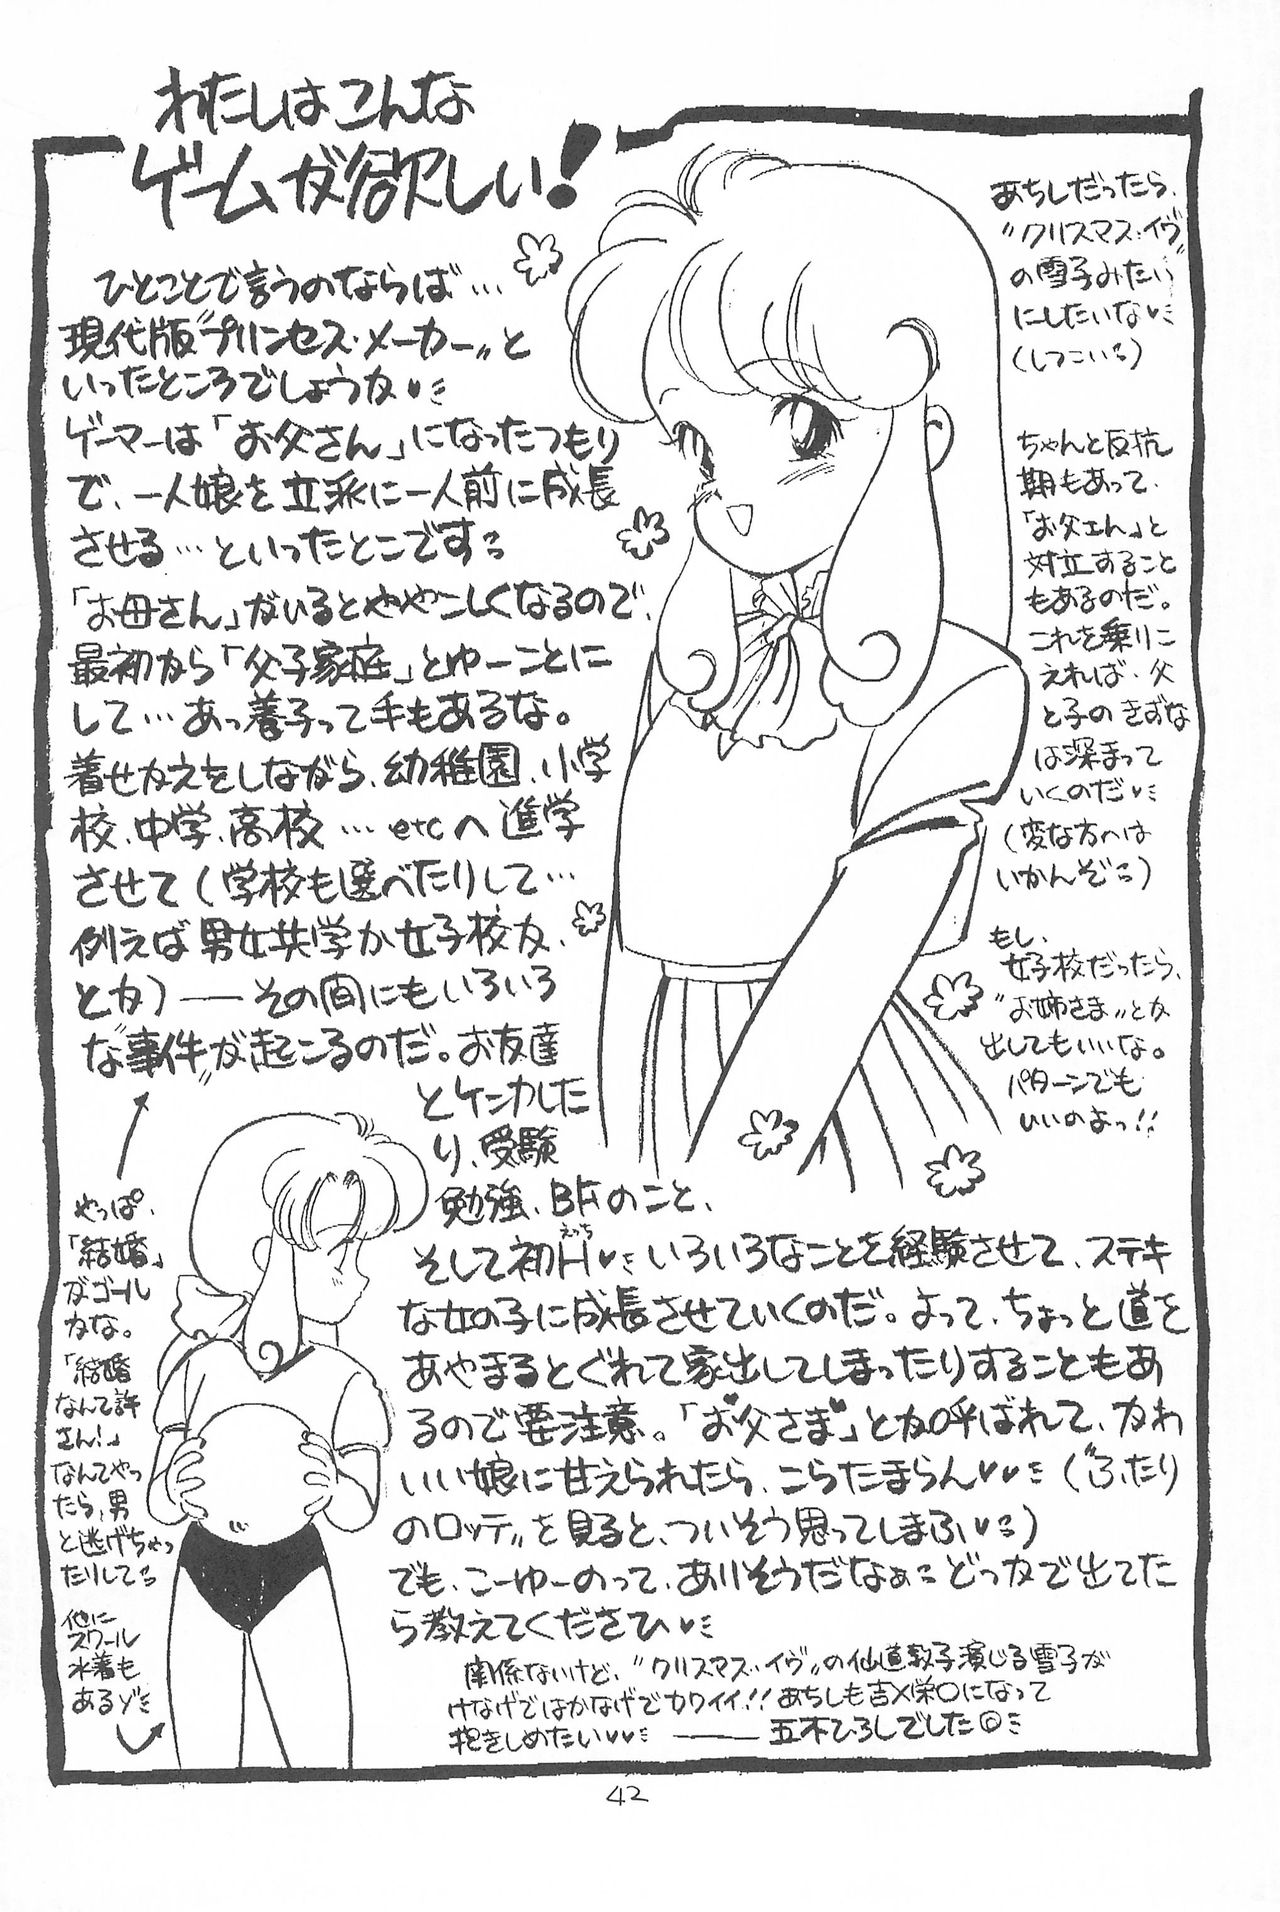 わたしはこんな
ゲームが欲しい！
ひとことで言うのならば…
現代版"プリンセス・メーカー"と
いったところでしょうか
ゲーマーは「お父さん」になったつもり
で、一人娘を立派に一人前に成長
させる…といったとこです
「お母さん」がいるとややこしくなるので、
最初から「父子家庭」とゆーことに
して…あっ養子って手もあるな。
着せかえをしながら、幼稚園、小学
校、中学、高校…etcへ進学
させて(学校も選べたりして…
例えば男女共学か女子校か、
とか)――その間にもいろいろ
な"事件"が起こるのだ。お友達
とケンカした
り、受験
勉強、BFのこと、
そして初H♥いろいろなことを経験させて、ステキ
えっち
な女の子に成長させていくのだ。よって、ちょっと道を
あやまるとぐれて家出してしまったりすることもあ
るので要注意。「お父さま」とか呼ばれて、かわ
いい娘に甘えられたら、こらたまらん♥♥("ふたり
のロッテ"を見ると、ついそう思ってしまふ♥)
でも、こーゆーのって、ありそうだなぁ どっかで出てた
ら教えてくださひ♥
関係ないけど、"クリスマス・イヴ"の仙道敦子演じる雪子が
けなげではかなげでカワイイ!!あちしも吉×栄○になって
抱きしめたい♥♥――五木ひろしでした
あちしだったら、
"クリスマス・イヴ"
の雪子みたい
にしたいな♥
(しつこい)
ちゃんと反抗
期もあって、
「お父さん」と
対立すること
もあるのだ。
これを乗りこ
えれば、父
と子のきずな
は深まって
いくのだ♥
(変な方へは
いかんぞ)
もし、
女子校だったら、
"お姉さま"とか
出してもいいな。
パターンでも
いいのよっ!!
やっぱ、
「結婚」
がゴール
かな。
「結婚
なんて許
さん!」
なんてやっ
たら、男
と逃げちゃっ
たりして
他に
スクール
水着も
あるゾ
42